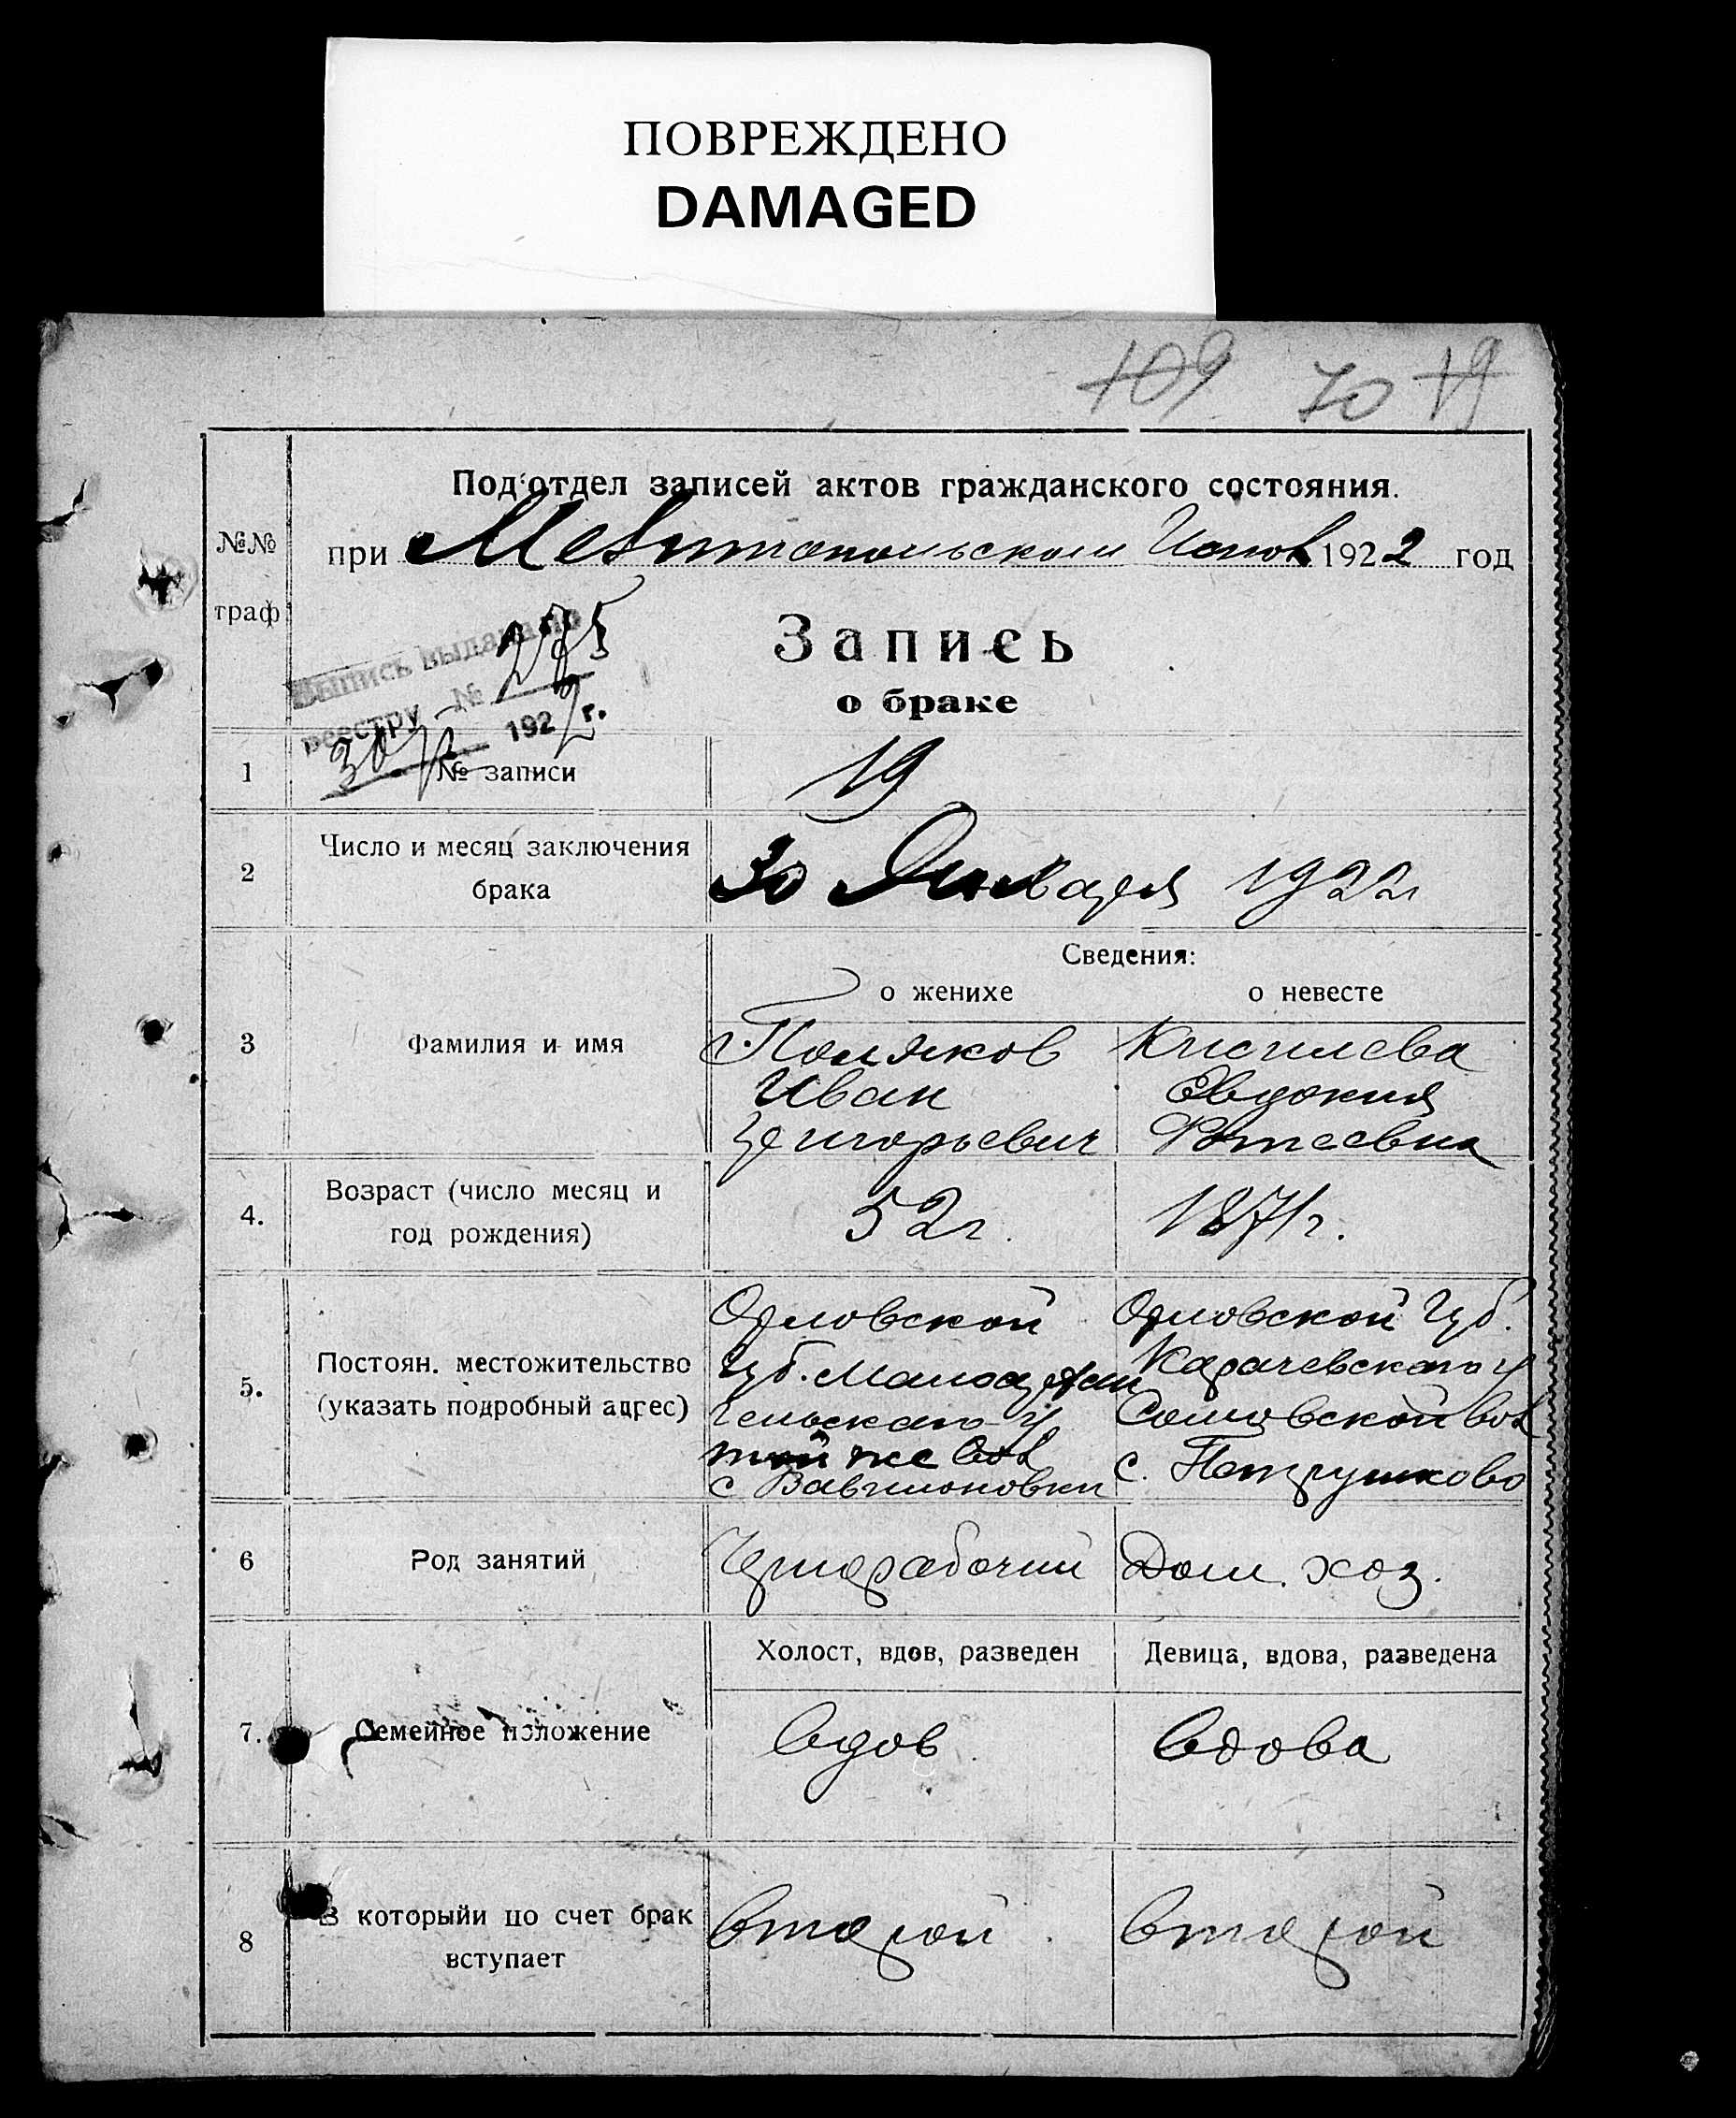 ПОВРЕЖДЕНО
DAMAGED
109 70 19
Подотдел записей актов гражданского состояния.
№№ траф
при Мелитопольском Испол 1922 год
Выпись выдана по
реестру №
30/I 1922 г.
Запись
о браке
1 № записи 19
2 Число и месяц заключения
брака
30 Января 1922г
Сведения:
о женихе о невесте
3 Фамилия и имя
Поляков Кисилева
Иван Евдокия
Григорьевич Фотеевна
4. Возраст (число месяц и
год рождения)
52г. 1871г.
5. Постоян. местожительство
(указать подробный адрес)
Орловской Орловской Губ.
Губ. Малоархан Карачевскаго у
гельскаго у Сомовской вол
той же вол с. Петрушково
с
6 Род занятий Чернорабочий Дом. хоз.
Холост, вдов, разведен Девица, вдова, разведена
7. Семейное положение Вдов Вдова
8 В которыйи по счет брак
вступает
второй второй